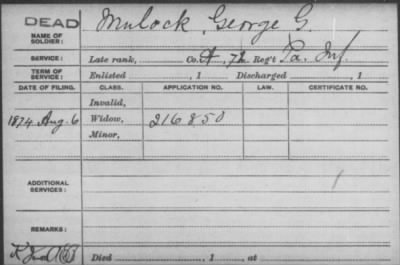 DEAD
NAME OF SOLDIER: Mulock, George G.
SERVICE: Late rank, Co. A, 72 Reg't Pa. Inf.
TERM OF SERVICE: Enlisted , 1 Discharged , 1
DATE OF FILING. CLASS. APPLICATION NO. LAW. CERTIFICATE NO.
Invalid,
1874 Aug. 6 Widow, 216850
Minor,
ADDITIONAL SERVICES:
REMARKS:
Died , 1 , at